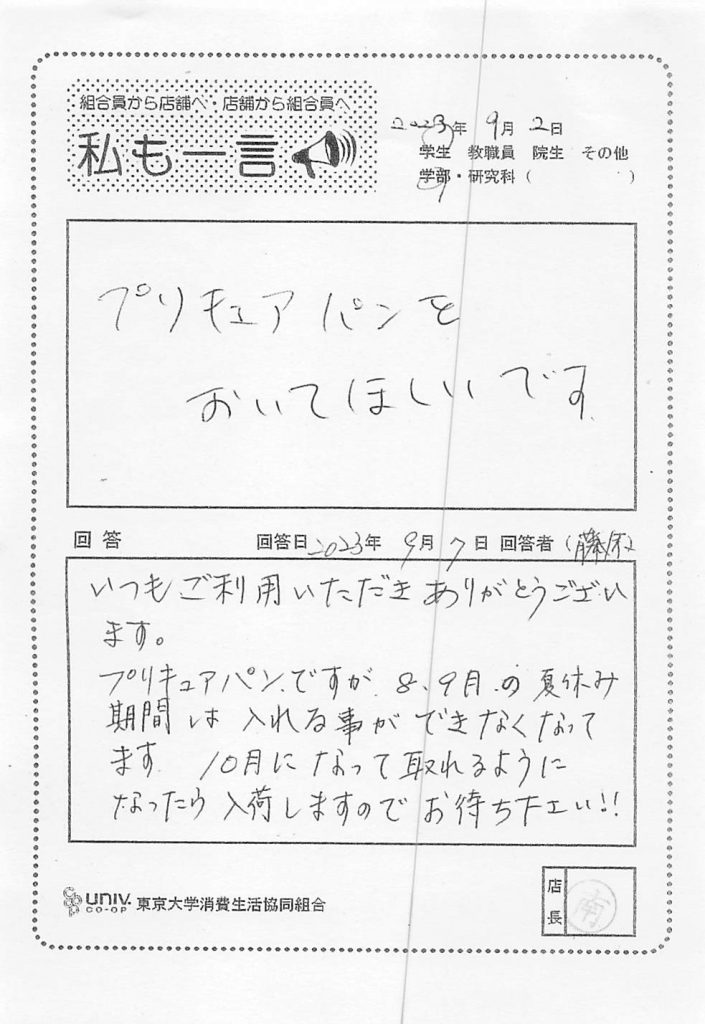 組合員から店舗へ・店舗から組合員へ
私も一言
2023年 9月 2日
学生 教職員 院生 その他
学部・研究科( )
プリキュアパンを
おいてほしいです
回答 回答日2023年 9月 7日 回答者(藤原)
いつもご利用いただきありがとうござい
ます。
プリキュアパンですが 8、9月の夏休み
期間は入れる事ができなくなって
ます 10月になって取れるように
なったら入荷しますのでお待ち下さい!!
UNIV. CO-OP 東京大学消費生活協同組合
店長
南